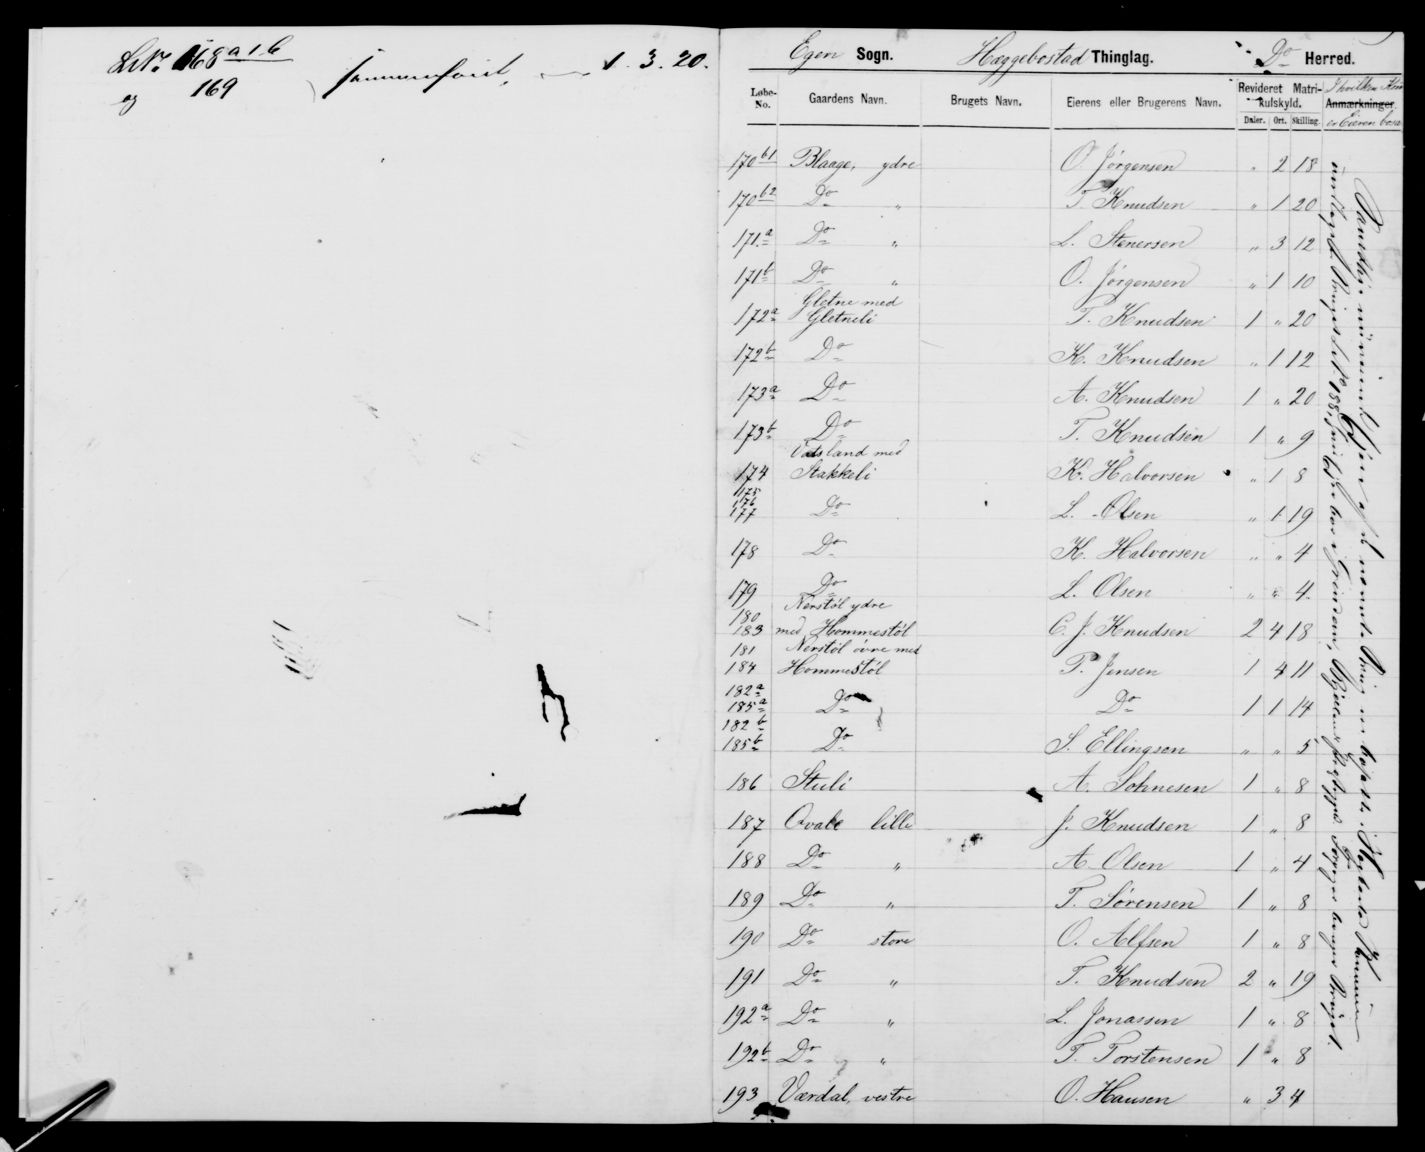 LNr. 168 a 1 b
og 169 sammenføiet, 1. 3. 20.
Egen Sogn. Hæggebostad Thinglag. Do Herred.
Løbe-No. Gaardens Navn. Brugets Navn. Eierens eller Brugerens Navn. Revideret Matrikulskyld. Daler. Ort. Skilling. Anmærkninger. I hvilken er Eieren
170 b1 Blaage, ydre O. Jørgensen " 2 18
170 b2 Do " T. Knudsen " 1 20
171 a Do " L. Stenersen " 3 12
171 b Do " O. Jørgensen " 1 10
Gletne med
172 a Gletneli T. Knudsen 1 " 20
172 b Do K. Knudsen " 1 12
173 a Do A. Knudsen 1 " 20
173 b Do T. Knudsen 1 " 9
Vatsland med
174 Stakkeli K. Halvorsen " 1 8
175
176
177 Do L. Olsen " 1 19
178 Do K. Halvorsen " " 4
179 Do L. Olsen " " 4
180 Nerstøl ydre
183 med Hommestøl C. J. Knudsen 2 4 18
181 Nerstøl øvre med
184 Hommestøl P. Jensen 1 4 11
182 a
185 a Do Do 1 1 14
182 b
185 b Do S. Ellingsen " " 5
186 Stuli A. Sohnesen 1 " 8
187 Qvale lille J. Knudsen 1 " 8
188 Do " A. Olsen 1 " 4
189 Do " T. Sørensen 1 " 8
190 Do store O. Alfsen 1 " 8
191 Do " T. Knudsen 2 " 19
192 a Do " L. Jonassen 1 " 8
192 b Do " T. Torstensen 1 " 8
193 Værdal, vestre O. Hansen " 3 4